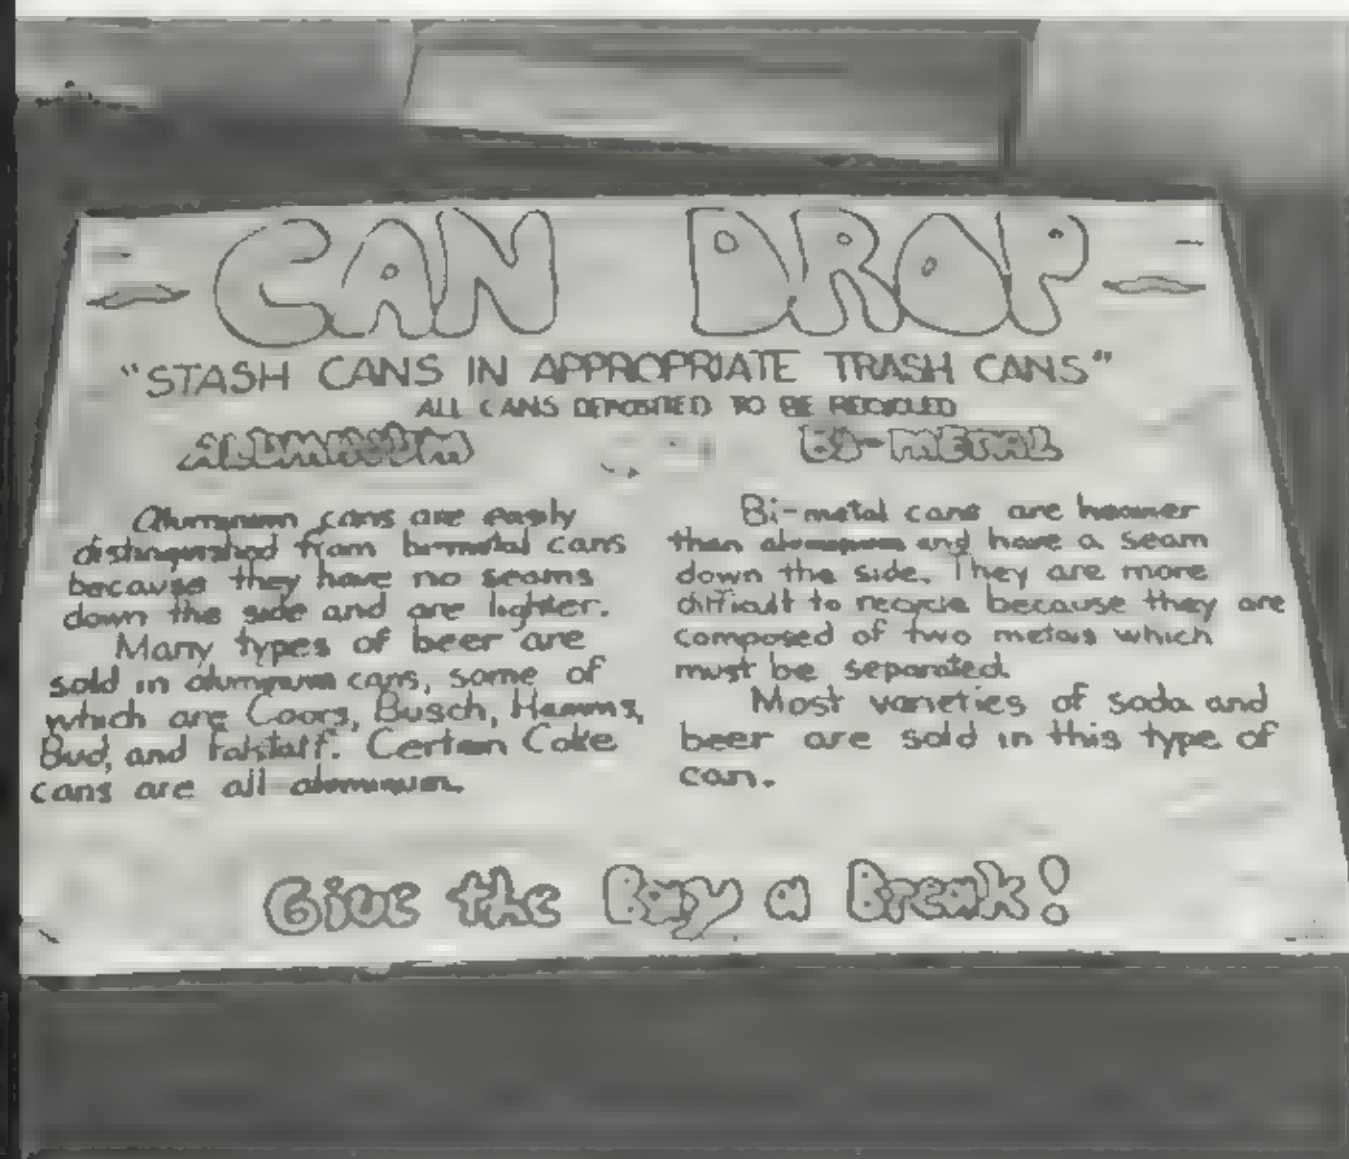 CAN DROP
"STASH CANS IN APPROPRIATE TRASH CANS"
ALL CANS DEPOSITED TO BE RECYCLED
ALUMINUM
Aluminum cans are easily
distinguished from bi-metal cans
because they have no seams
down the side and are lighter.
Many types of beer are
sold in aluminum cans, some of
which are Coors, Busch, Hamms,
Bud, and Falstaff. Certain Coke
cans are all aluminum.
Bi-METAL
Bi-metal cans are heavier
than aluminum and have a seam
down the side. They are more
difficult to recycle because they are
composed of two metals which
must be separated.
Most varieties of soda and
beer are sold in this type of
can.
Give the Bay a Break!